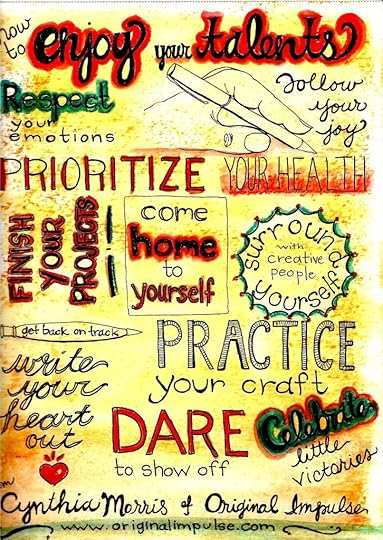 how to enjoy your talents
Follow
your
joy
Respect
your
emotions
PRIORITIZE YOUR HEALTH
FINISH
YOUR
PROJECTS!
come
home
to
yourself
surround
yourself
with
creative
people
get back on track
PRACTICE
your craft
write
your
heart
out
DARE
to show off
Celebrate
little
victories
Cynthia Morris of Original Impulse
www.originalimpulse.com